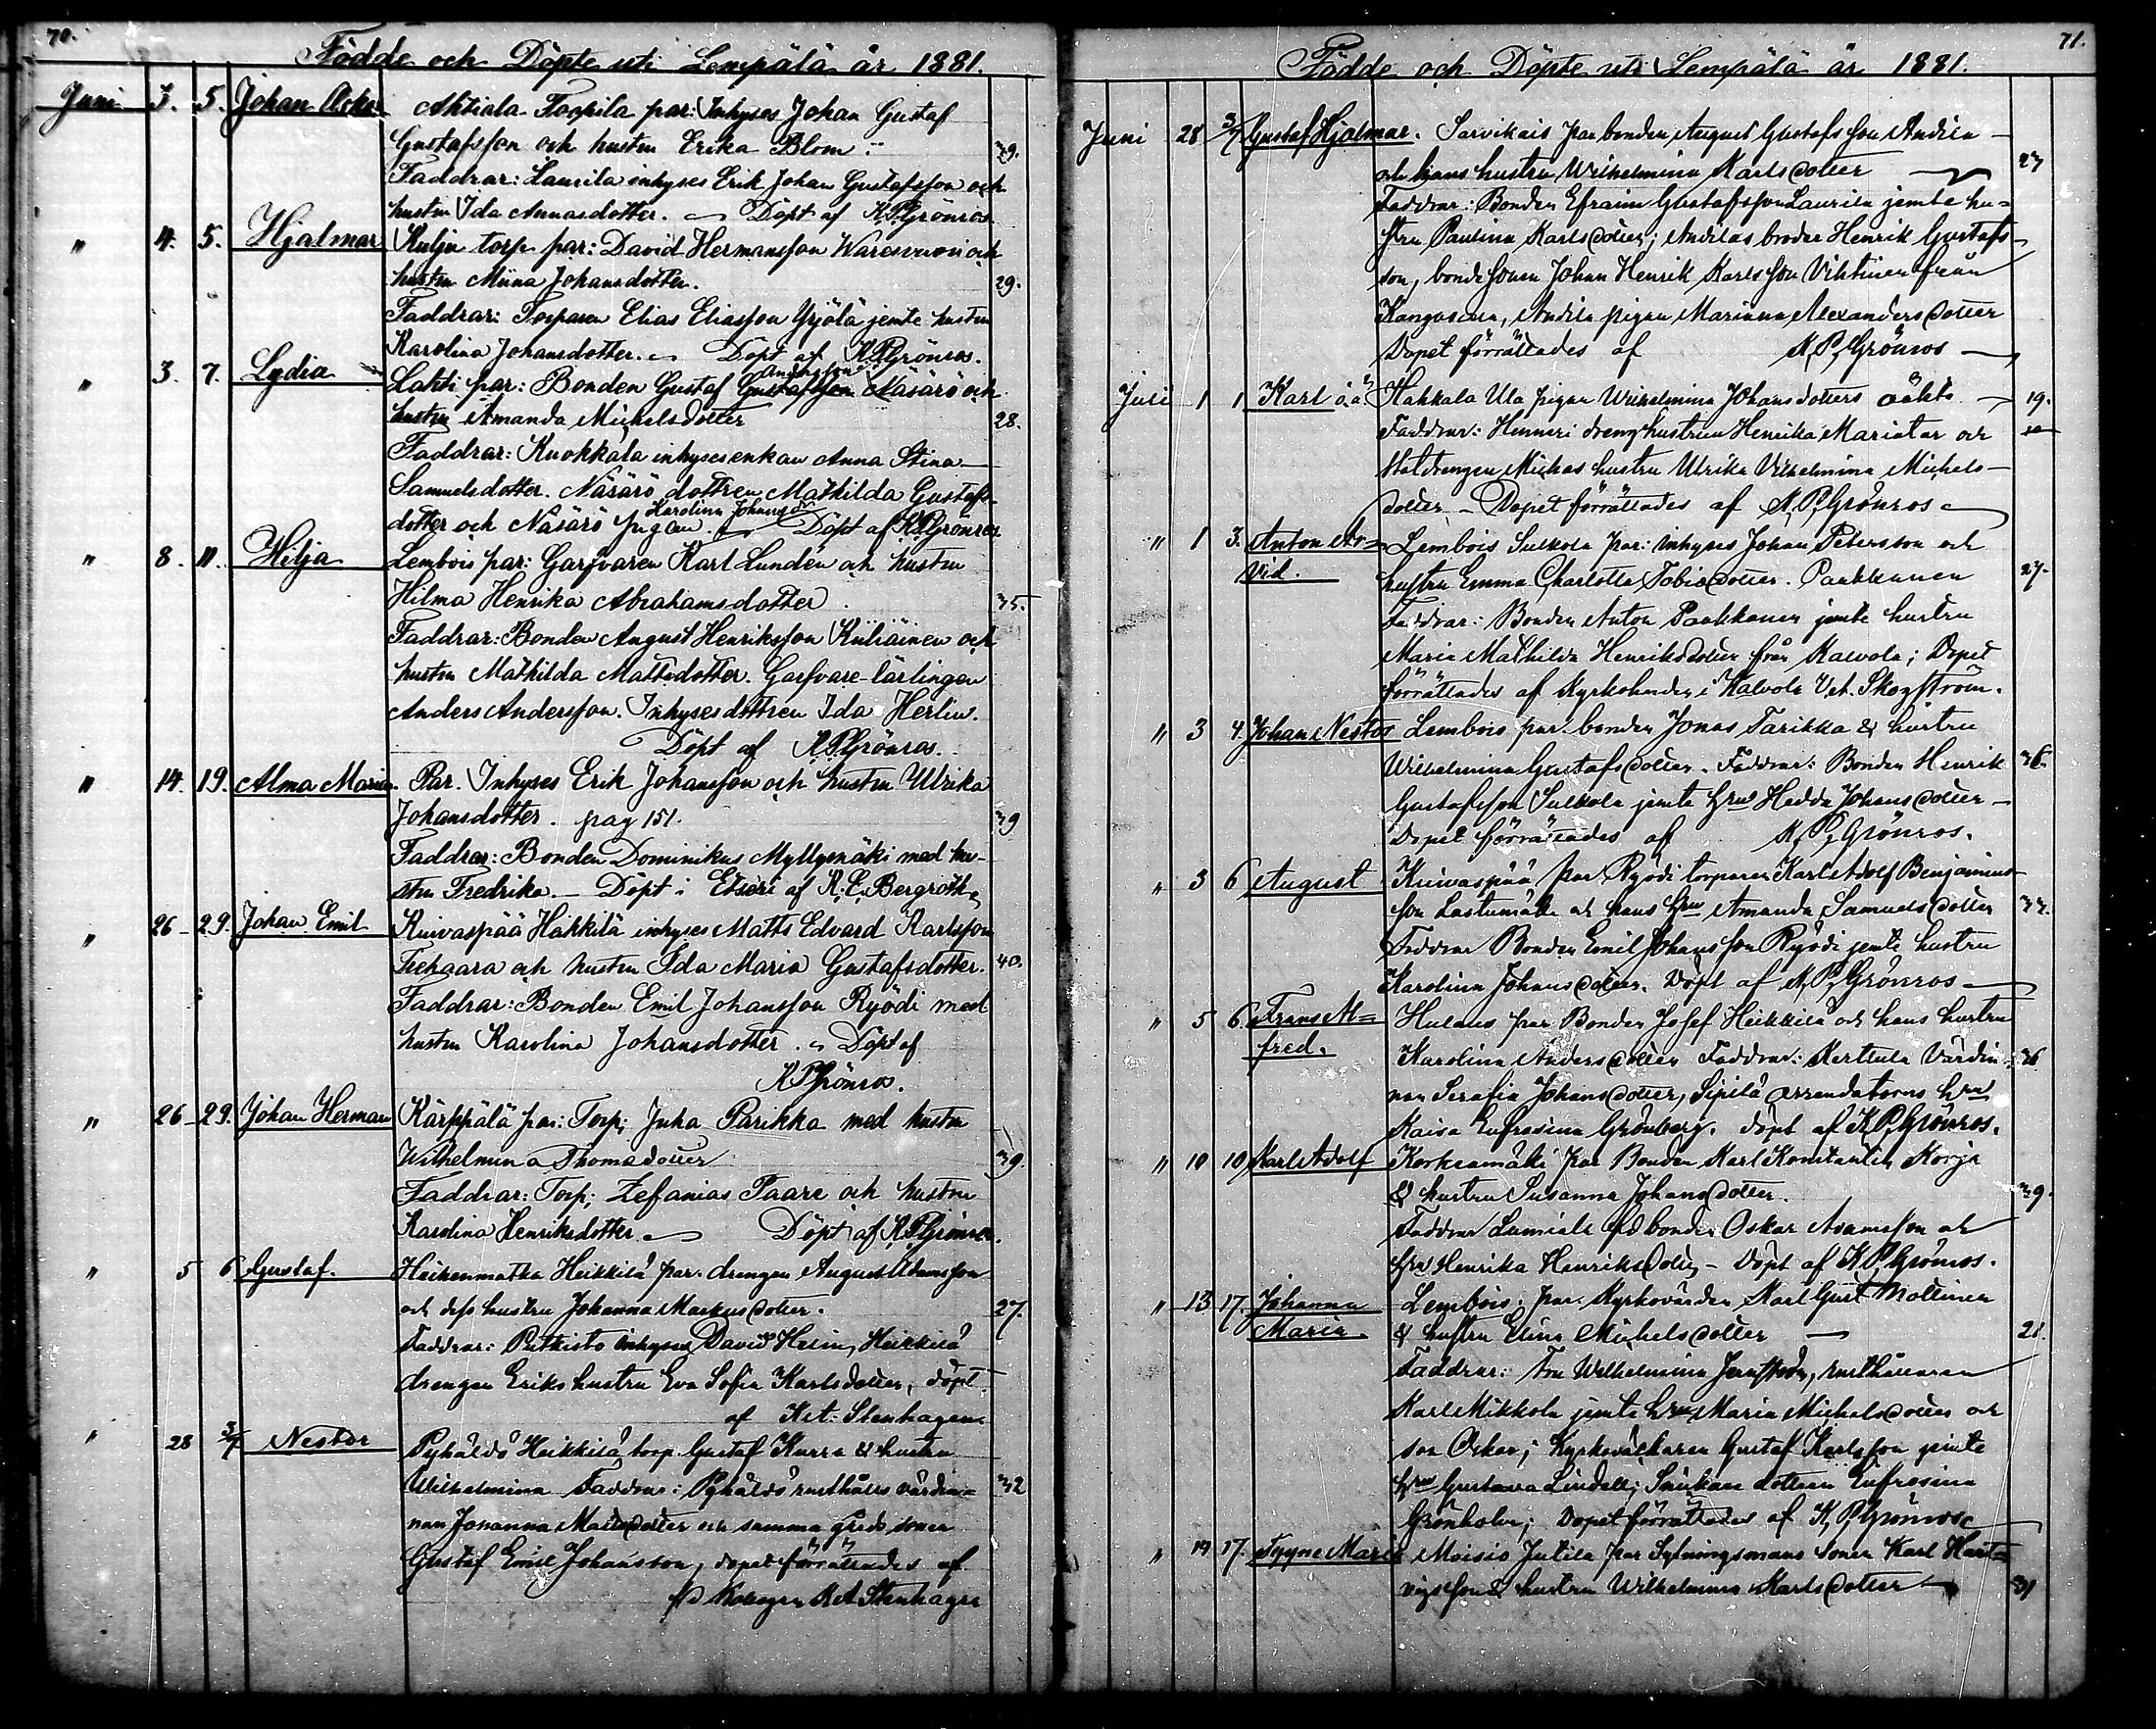 70.
Födde och Döpte uti Lempälä år 1881.
Juni 3. 5. Johan Oskar Ahtiala Torpila par: Inhyses Johan Gustaf
Gustafsson och hustru Erika Blom 29.
Faddrar: Laurila inhyses Erik Johan Gustafsson och
hustru Ida Annasdotter. Döpt af K.P.Grönros
" 4. 5. Hjalmar Kulju torp. par: David Hermansson Waresvuori och
hustru Miina Johansdotter. 29.
Faddrar: Torparen Elias Eliasson Yrjölä jemte hustru
Karolina Johansdotter. Döpt af K.P.Grönros.
" 3. 7. Lydia Lahti par: Bonden Gustaf Gustafsson Näsärö och
hustru Amanda Michelsdotter 28.
Faddrar: Kuokkala inhysesenkan Anna Stina
Samuelsdotter. Näsärö dottren Mathilda Gustafs-
Karolina Johansdr
dotter och Näsärö pigan Döpt af K.P.Grönros
" 8. 11. Hilja Lembois par: Garfvaren Karl Lundén och hustru
Hilma Henrika Abrahamsdotter 35.
Faddrar: Bonden August Henriksson Kuliäinen och
hustru Mathilda Mattsdotter. Garfvare-lärlingen
Anders Andersson. Inhysesdottren Ida Herlin.
Döpt af K.P.Grönros.
" 14. 19. Alma Maria Par. Inhyses Erik Johansson och hustru Ulrika
Johansdotter. pag 151. 39
Faddrar: Bonden Dominikus Myllymäki med hu-
stru Fredrika. – Döpt i Etseri af K. E. Bergroth
" 26 – 29. Johan Emil Kuivaspää Hakkilä inhyses Matts Edvard Karlsson
och hustru Ida Maria Gustafsdotter. 40.
Faddrar: Bonden Emil Johansson Ryödi med
hustru Karolina Johansdotter. Döpt af
K.P.Grönros.
" 26 – 29. Johan Herman Kärppälä par: Torp; Juha Parikka med hustru
Wilhelmina Thomadotter 39.
Faddrar: Torp; Zefanias Paare och hustru
Karolina Henriksdotter. Döpt af K.P.Grönros.
" 5 6 Gustaf. Heikkilä par. drengen August Adamsson
och dess hustru Johanna Markusdotter. 27.
Faddrar: Putkisto inhyses David Helin, Heikkilä
drengen Eriks hustru Eva Sofia Karlsdotter, döpt
af Stenhagen
" 28 3/7 Nestor Pyhältö Heikkilä torp. Gustaf Kurra & hustru
Wilhelmina Faddrar: Pyhältö rusthålls värdin- 32
nan Johanna Mattsdotter och samma gårds sonen
Gustaf Emil Johansson, dopet förrättades af
Stenhagen
71.
Födde och Döpte uti Lempälä år 1881.
Juni 28 3/7 Gustaf Hjalmar. Sarvikais par bonden August Gustafsson Andila
och hans hustru Wilhelmina Karlsdotter 27
Faddrar: Bonden Efraim Gustafsson Laurila jemte hu-
stru Paulina Karlsdotter; Andilas broder Henrik Gustafs-
son, bonde sonen Johan Henrik Karlsson Vihtinen från
Kangasala, Andila pigan Mariana Alexandersdotter
Dopet förrättades af K. P. Grönros
Juli 1 1 Karl o.ä. Hakkala Ula pigan Wilhelmina Johansdotters oäkta 19.
Faddrar: Henneri drenghustrun Henrika Mariatar och
Statdrengen Mickos hustru Ulrika Vilhelmina Michels-
dotter – Dopet förrättades af K. P. Grönros
" 1 3. Anton Ar- Lembois Sulkola par: inhyses Johan Petersson och
vid. hustru Emma Charlotta Tobiasdotter. Paukkunen 27.
Faddrar: Bonden Anton Paukkunen jemte hustru
Maria Mathilda Henriksdotter från Kalvola; Dopet
förrättades af Kyrkoherden i Kalvola Skogström.
" 3 4. Johan Nestor Lembois par. bonden Jonas Tarikka & hustru
Wilhelmina Gustafsdotter. Faddrar: Bonden Henrik 36
Gustafsson Sulkola jemte hru Hedda Johansdotter –
Dopet förrättades af K. P. Grönros.
" 3 6 August Kuivaspää par Ryödi torparen Karl Adolf Benjamins-
son Lastumäki och hans hru Amanda Samuelsdotter 33.
Faddrar Bonden Emil Johansson Ryödi jemte hustru
Karolina Johansdotter. Döpt af K. P. Grönros
" 5 6. Frans M- Hulaus par Bonden Josef Heikkilä och hans hustru
fred. Karolina Andersdotter Faddrar: Kerttula Värdin- 36
nan Serafia Johansdotter, Sipilä arrendatorns hru
Kaisa Eufrosina Grönberg. döpt af K. P. Grönros.
" 10 10 Karl Adolf Korkeamäki par Bonden Karl Konstantin Korja
& hustru Susanna Johansdotter. 39.
Faddrar bonden Oskar Adamsson och
hru Henrika Henriksdotter – Döpt af K. P. Grönros.
" 13 17. Johanna Lembois par. Kyrkovärden Karl Gust Mollinen
Maria. & hustru Elina Michelsdotter 21.
Faddrar: Fru Wilhelmina rusthållaren
Karl Mikkola jemte hru Maria Michelsdotter och
son Oskar; Kyrkoväktaren Gustaf Karlsson jemte
hru Gustava Lindell; dottren Eufrosina
Grönholm; Dopet förrättades af K. P. Grönros
" 14 17. Tyyne Maria Moisio Jutila par Sytningsmans sonen Karl Hart-
vigsson & hustru Wilhelmina Karlsdotter 31